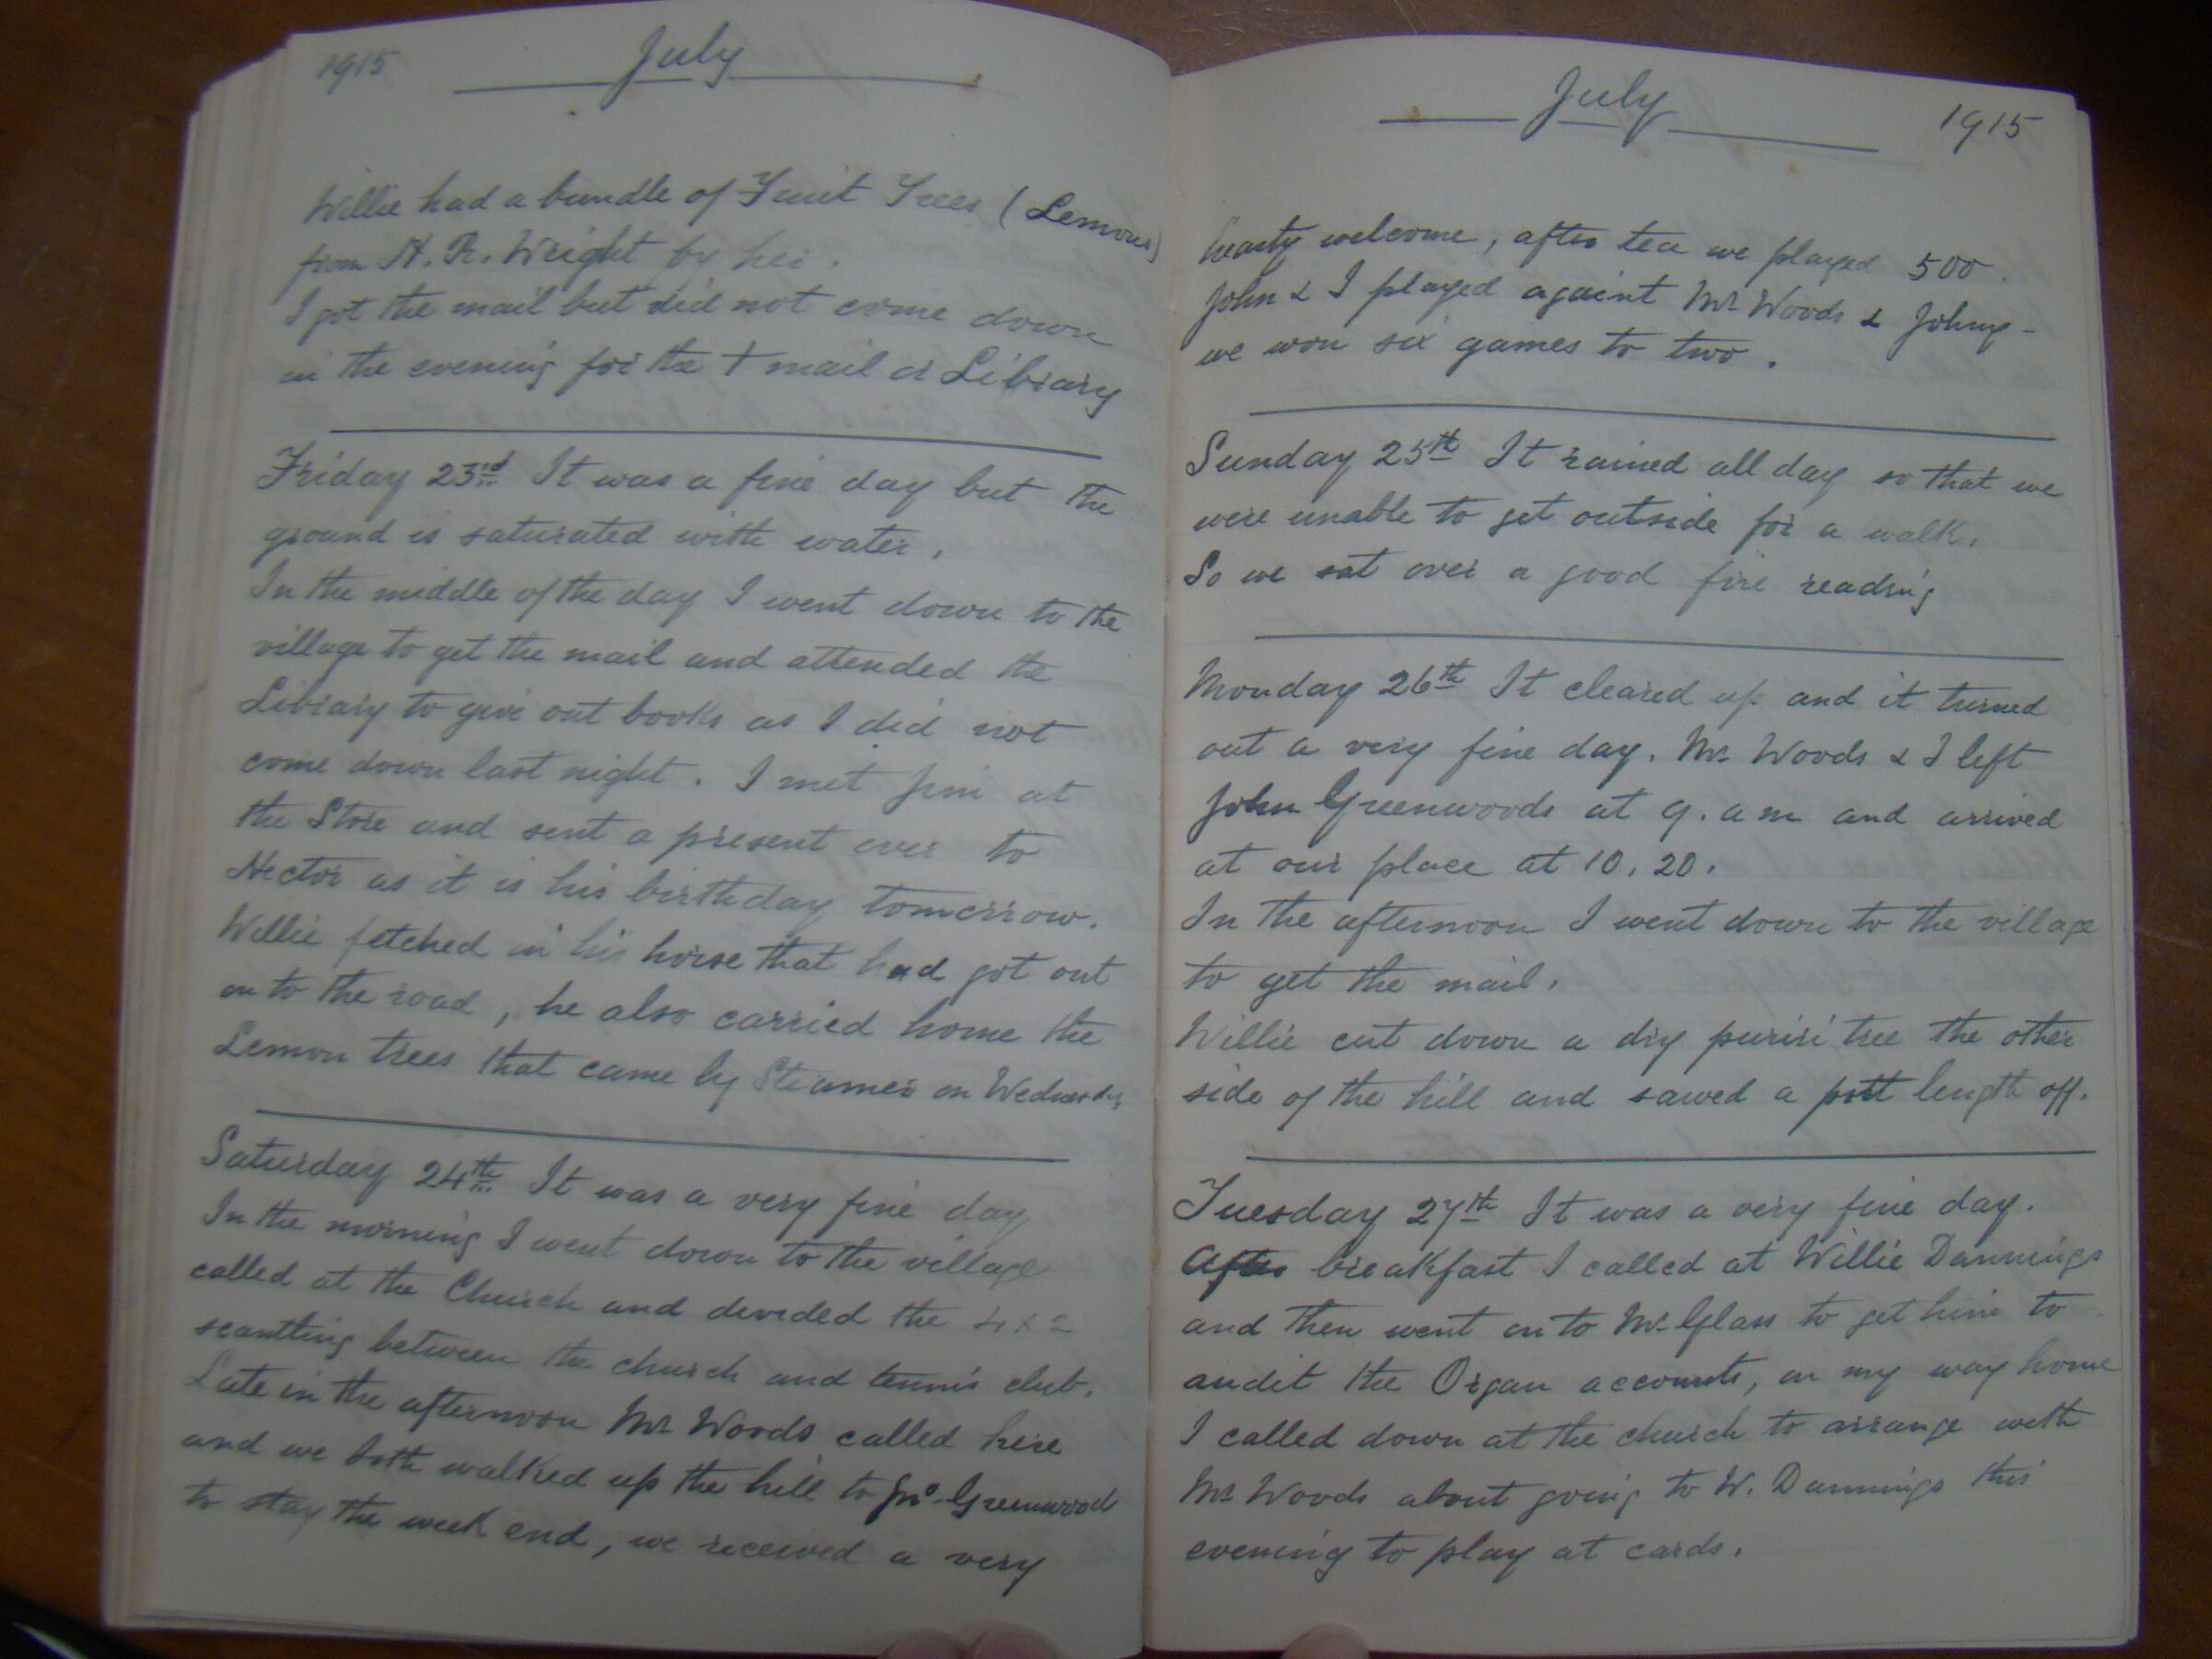 1915
July
Willie had a bundle of Fruit Trees (Lemons)
from H. R. Wright by her.
I got the mail but did not come down
in the evening for the + mail or Library
Friday 23rd It was a fine day but the
ground is saturated with water.
In the middle of the day I went down to the
village to get the mail and attended the
Library to give out books as I did not
come down last night. I met Jim at
the Store and sent a present over to
Hector as it is his birthday tomorrow.
Willie fetched in his horse that had got out
on to the road, he also carried home the
Lemon trees that came by Steamer on Wednesday
Saturday 24th It was a very fine day
In the morning I went down to the village
called at the Church and divided the 4 x 2
scantling between the church and tennis club.
Late in the afternoon Mr Woods called here
and we both walked up the hill to Jno. Greenwoods
to stay the week end, we received a very
July
1915
hearty welcome, after tea we played 500.
John & I played againt Mr Woods & Johny-
we won six games to two.
Sunday 25th It rained all day so that we
were unable to get outside for a walk.
So we sat over a good fire reading
Monday 26th It cleared up and it turned
out a very fine day. Mr Woods & I left
John Greenwoods at 9. a m and arrived
at our place at 10, 20.
In the afternoon I went down to the village
to get the mail.
Willie cut down a dry puriri tree the other
side of the hill and sawed a length off.
Tuesday 27th It was a very fine day.
After breakfast I called at Willie Dannings
and then went on to Mr Glass to get him to
audit the Organ accounts, on my way home
I called down at the church to arrange with
Mr Woods about going to W. Dannings this
evening to play at cards.